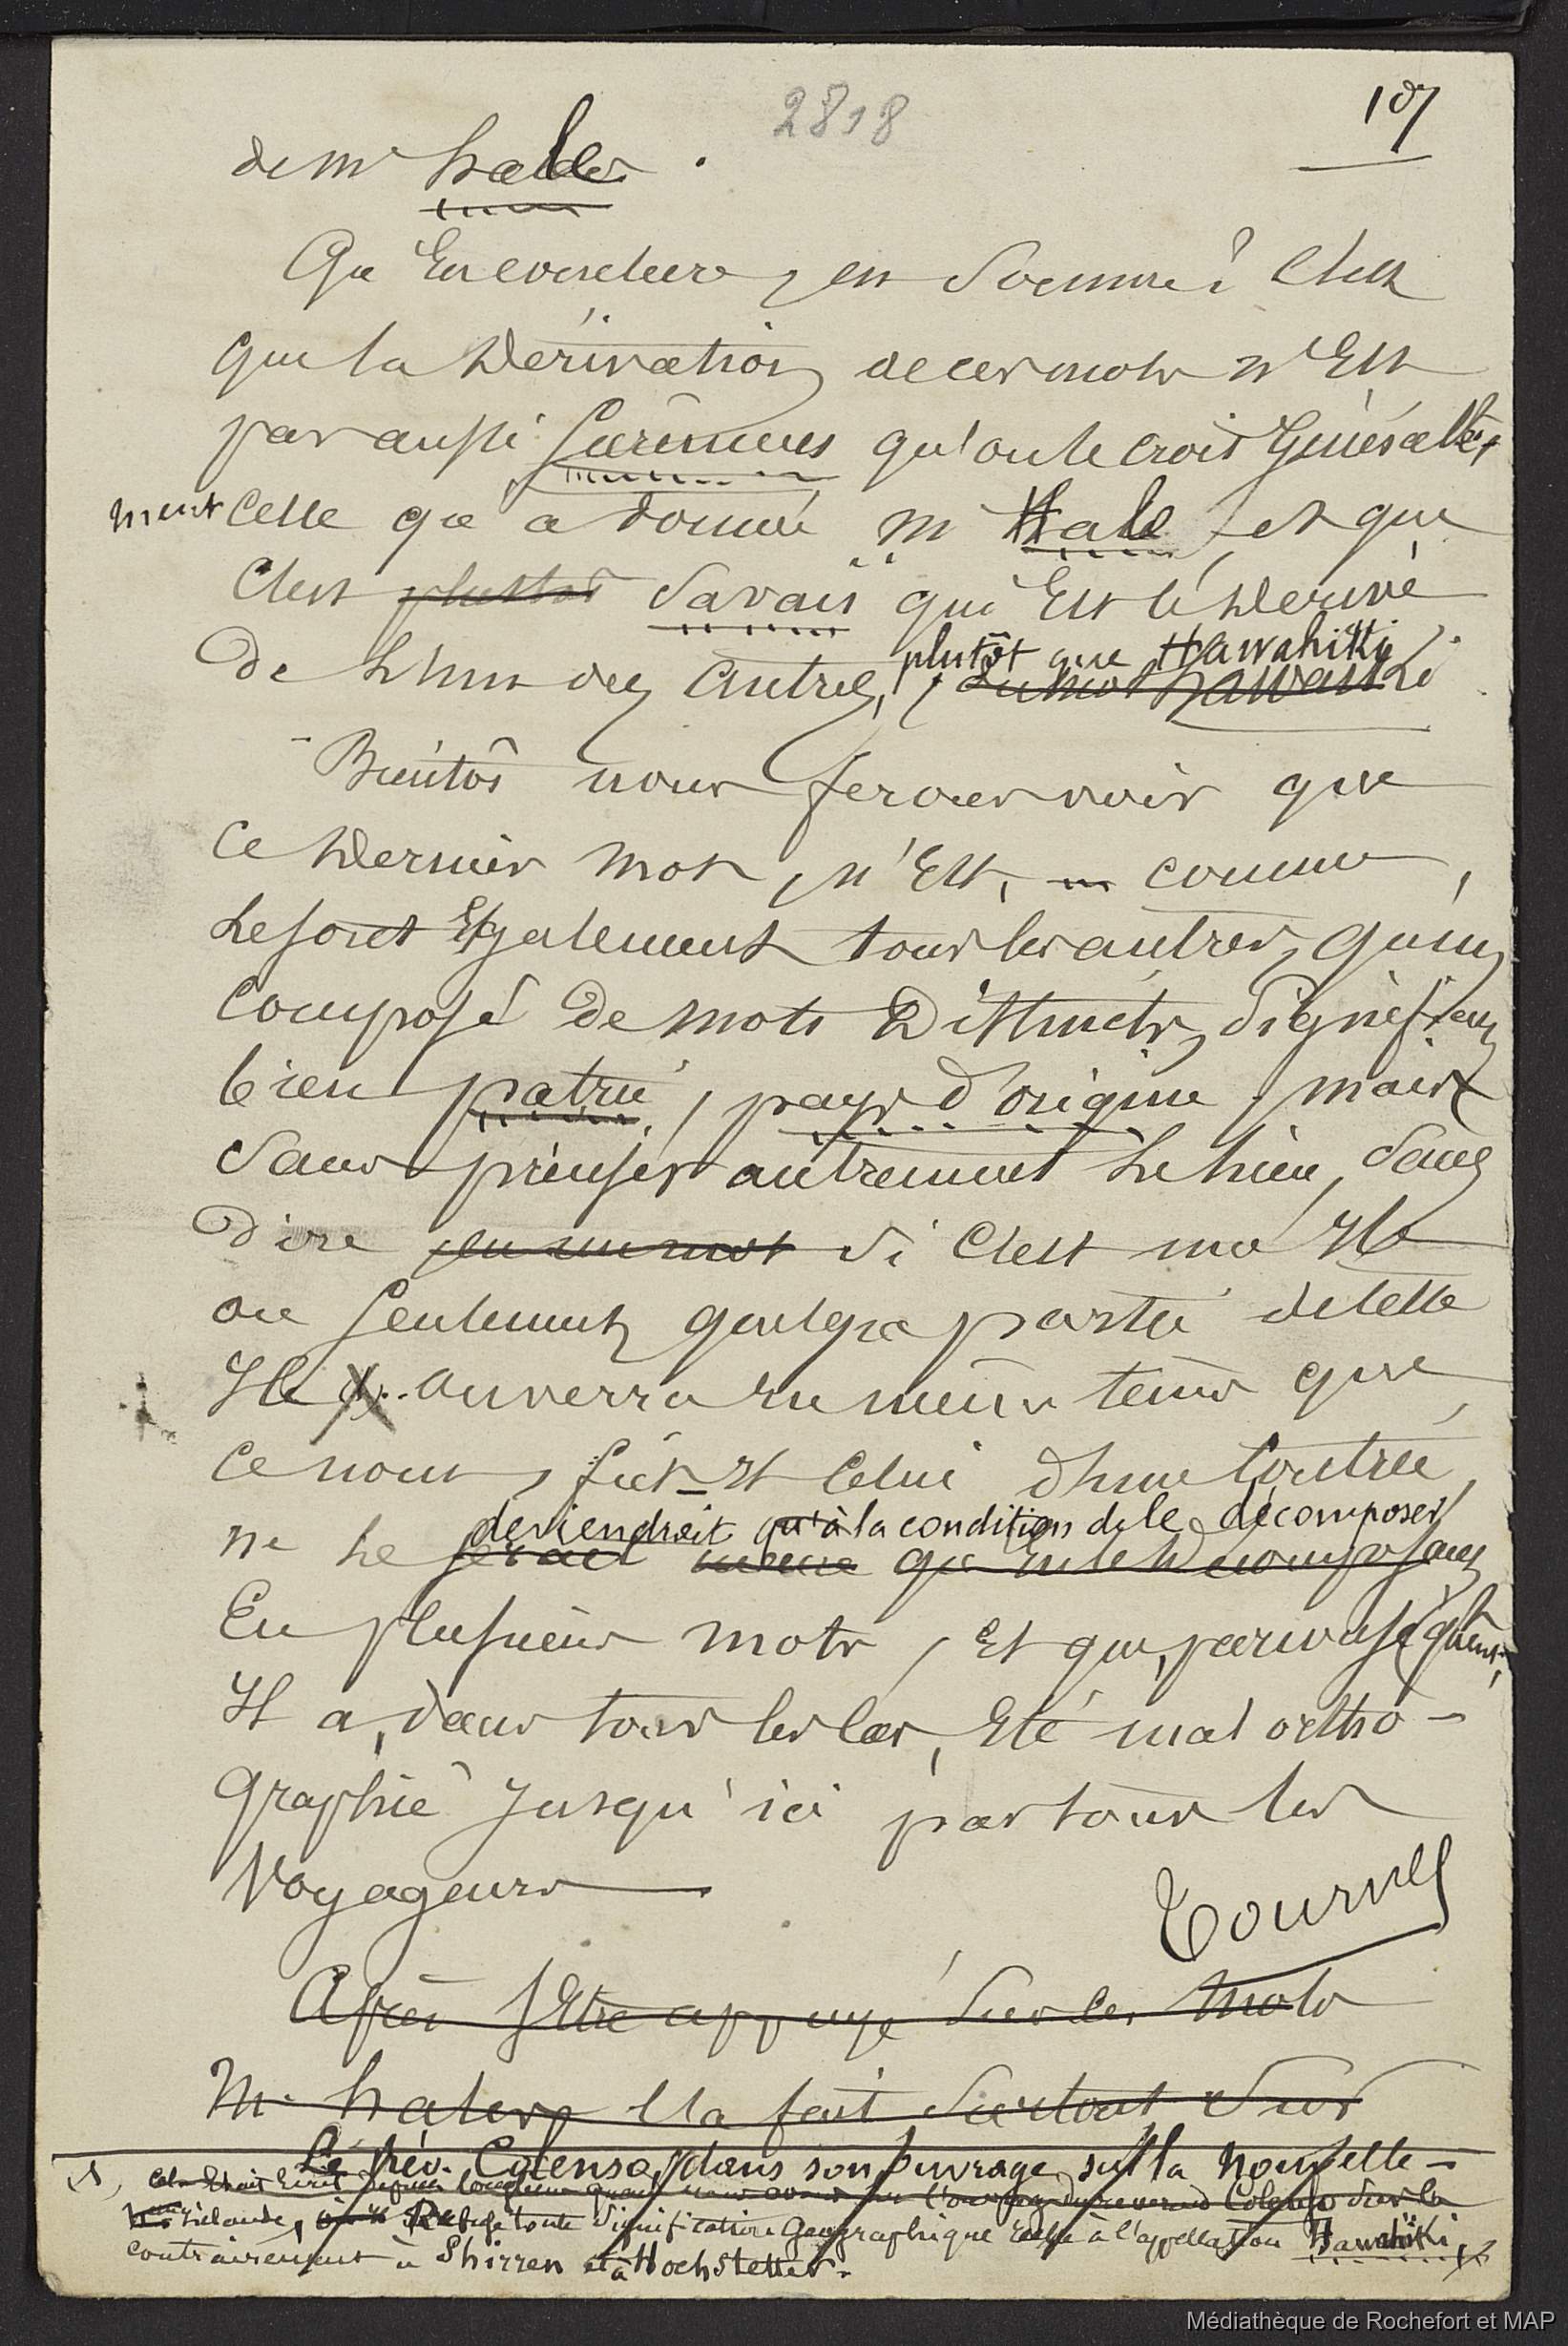 2818
107
de Mr hale .
Que Conclure, en somme? C'est
que la Dérivation de ces mots n'Est
pas aussi Saremens qu'on le croit Générale-
ment Celle qu'a donnée Mr Hale, et que
C'est plustot Savaii qui Est le Dérivé
De L'un des Autres, plutôt que Hawahiki
du mot hawaiki
Bientôt nous ferons voir que
Ce Dernier Mot, n'Est, comme
Le sont Egalement tous les autres, qu'un
Composé De Mots Distincts, Signifiant
bien patrie, pays D'origine, mais
Sans préciser autrement Le lieu, Sans
Dire en un mot Si C'est une Ile
ou Seulement quelque partie de cette
Ile . On verra en même tems que
Ce nom, fût-il Celui D'une Contrée,
deviendrait qu'à la condition de le décomposer
ne Le serait même qu'en le Décomposant
En plusieurs mots, Et que, par conséquent,
Il a, dans tous les Cas, Eté mal ortho-
graphié Jusqu'ici par tous les
Voyageurs
Tournez
Après s'Etre appuyé Sur les Mots
Mr. hale L'a fait Surtout Sur
Le Rév. Colenso, dans son ouvrage sur la Nouvelle-
1, Cela Etait Ecrit depuis longtems quand nous avons vu l'ouvrage du reverend Colenso Sur la
zélande, Refuse toute Signification Géographique à l'appellation Hawahiki,
contrairement à Shirren et à Hochstetter.
Médiathèque de Rochefort et MAP